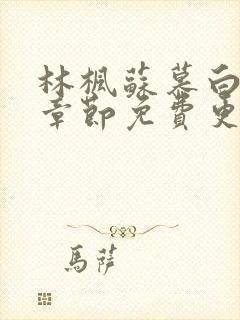 林楓蘇慕白
章節免費更
馬薩